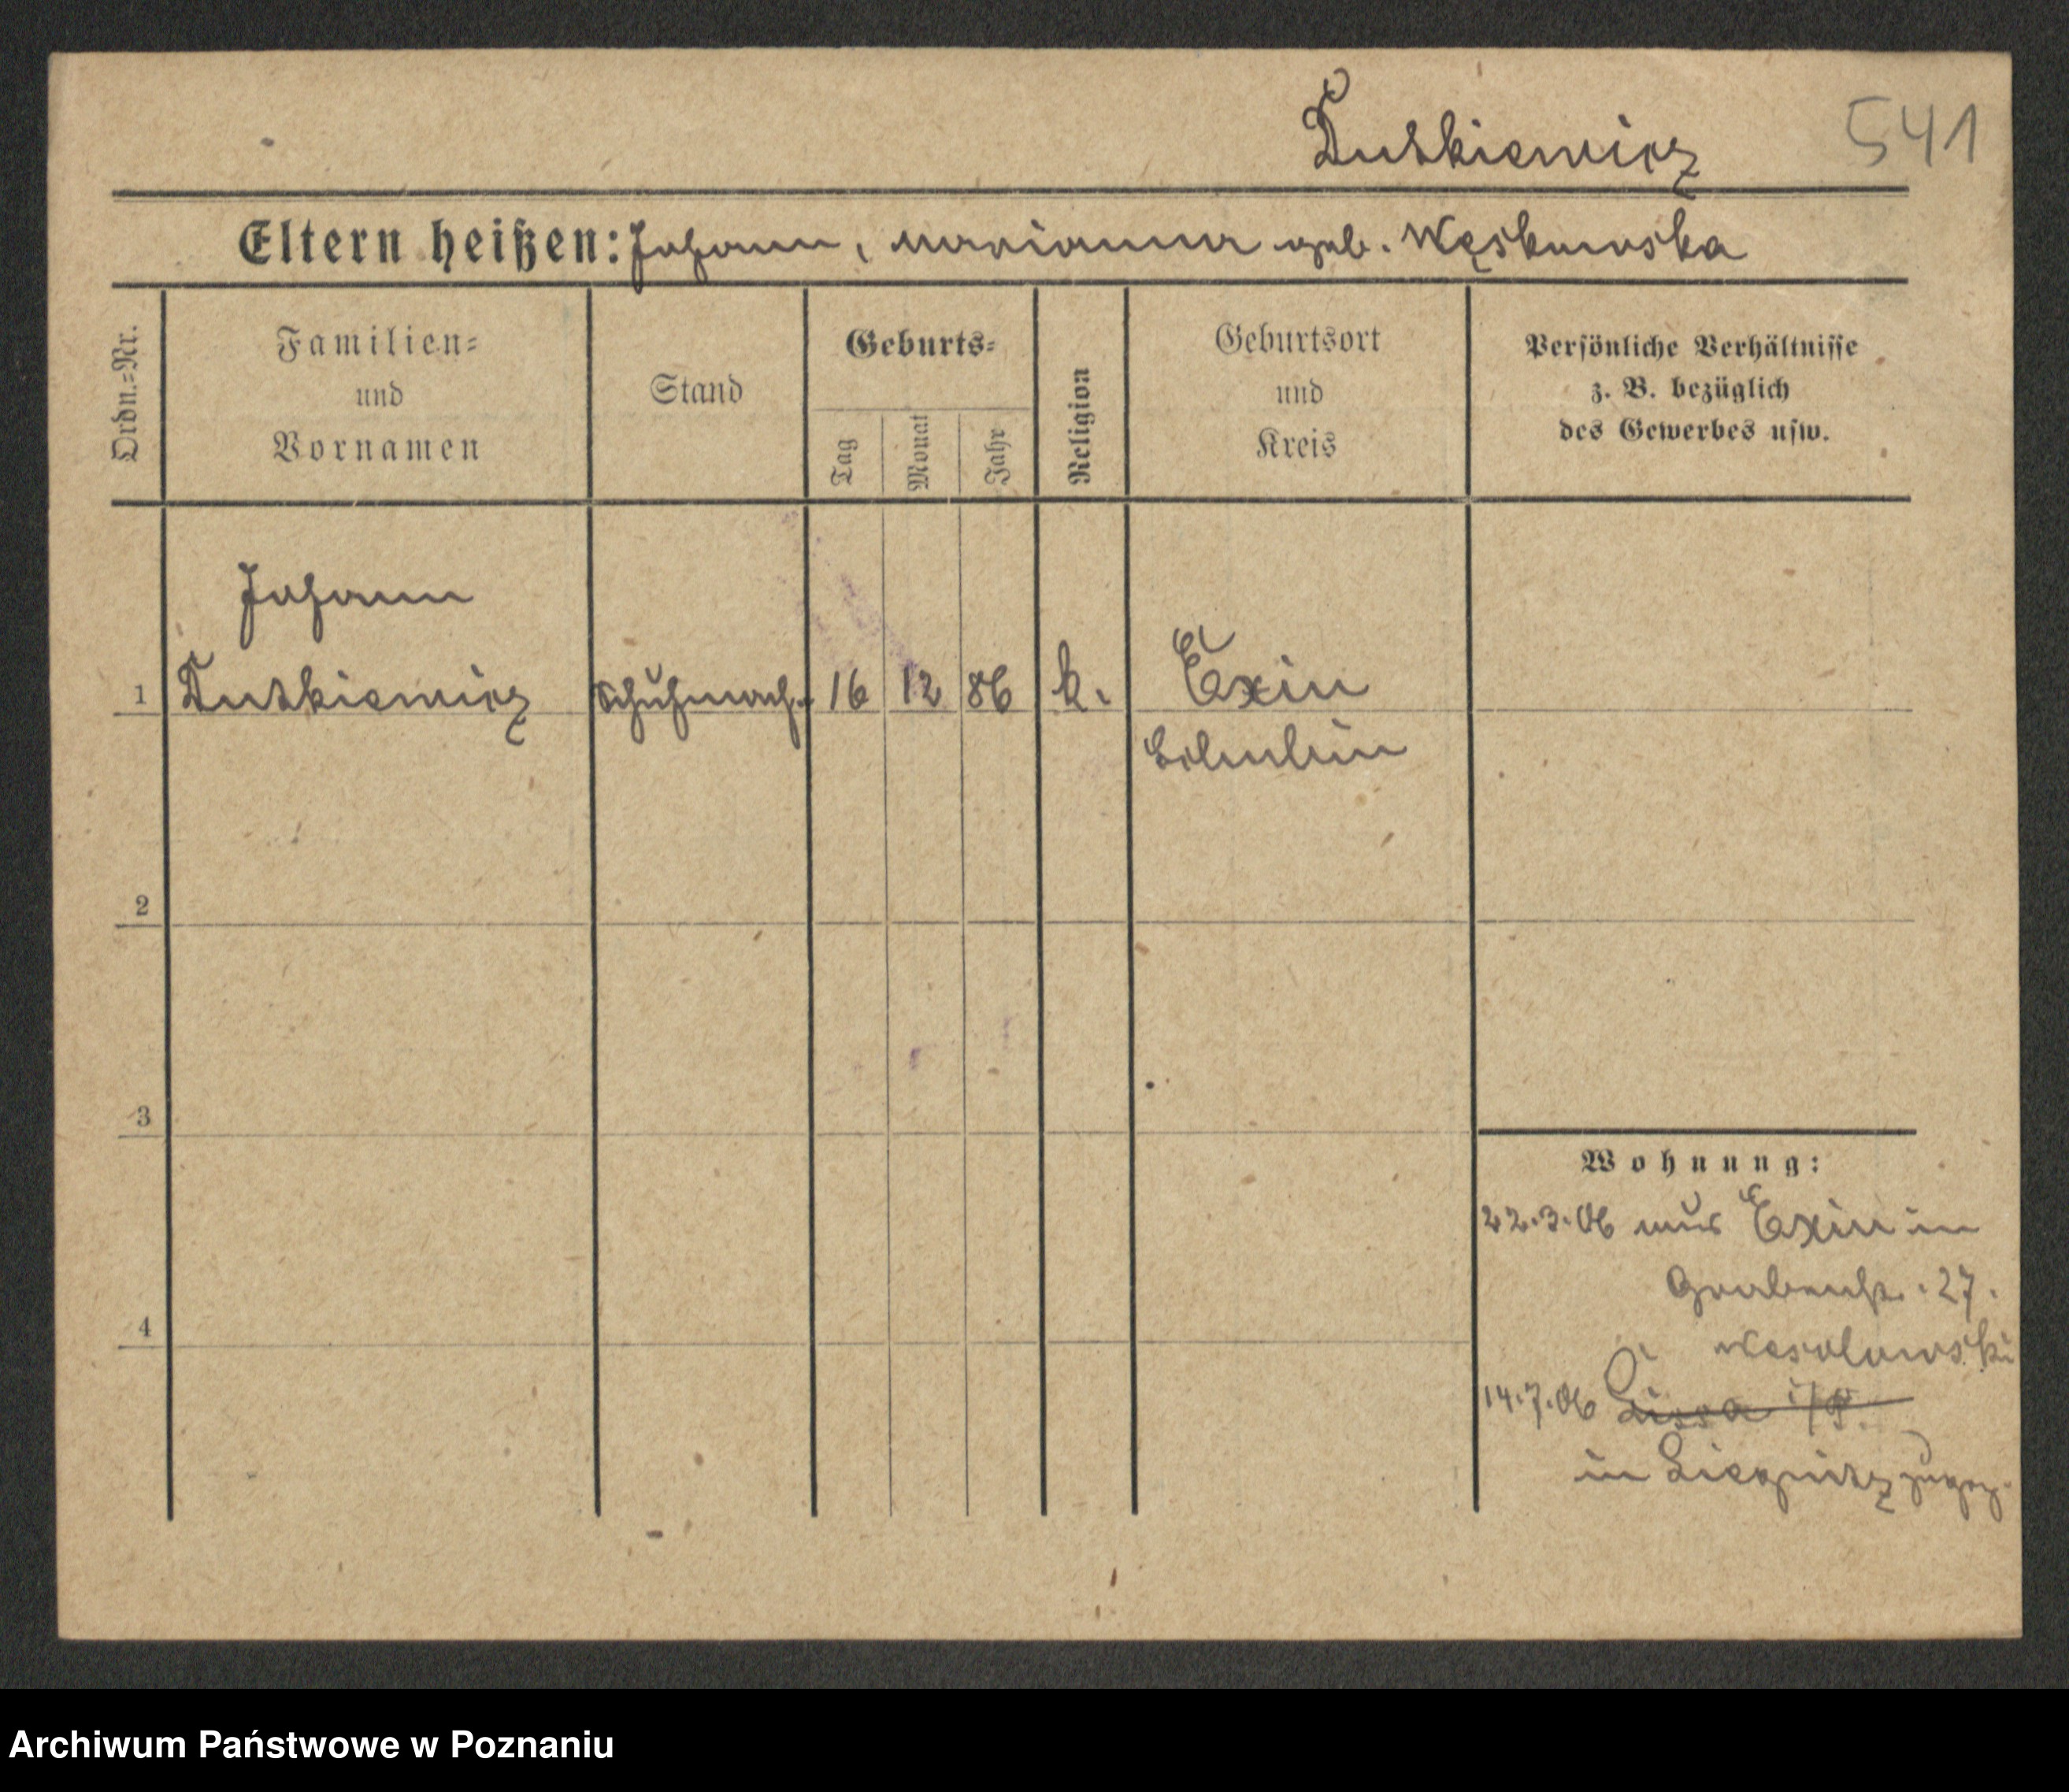 Dutkiewicz 541
Eltern heißen: Johann, Marianna geb. Węskowska
Ordn.=Nr.
Familien=
und
Vornamen
Stand
Geburts=
Tag
Monat
Jahr
Religion
Geburtsort
und
Kreis
Persönliche Verhältnisse
z. B. bezüglich
des Gewerbes usw.
Johann
1 Dutkiewicz Schuhmach. 16 12 86 k. Exin
Schubin
2
3
4
Wohnung:
22.3.06 aus Exin in
Grabenstr. 27.
Wesolowski
14.7.06 Lissa i/P.
in Liegnitz zugez.
Archiwum Państwowe w Poznaniu